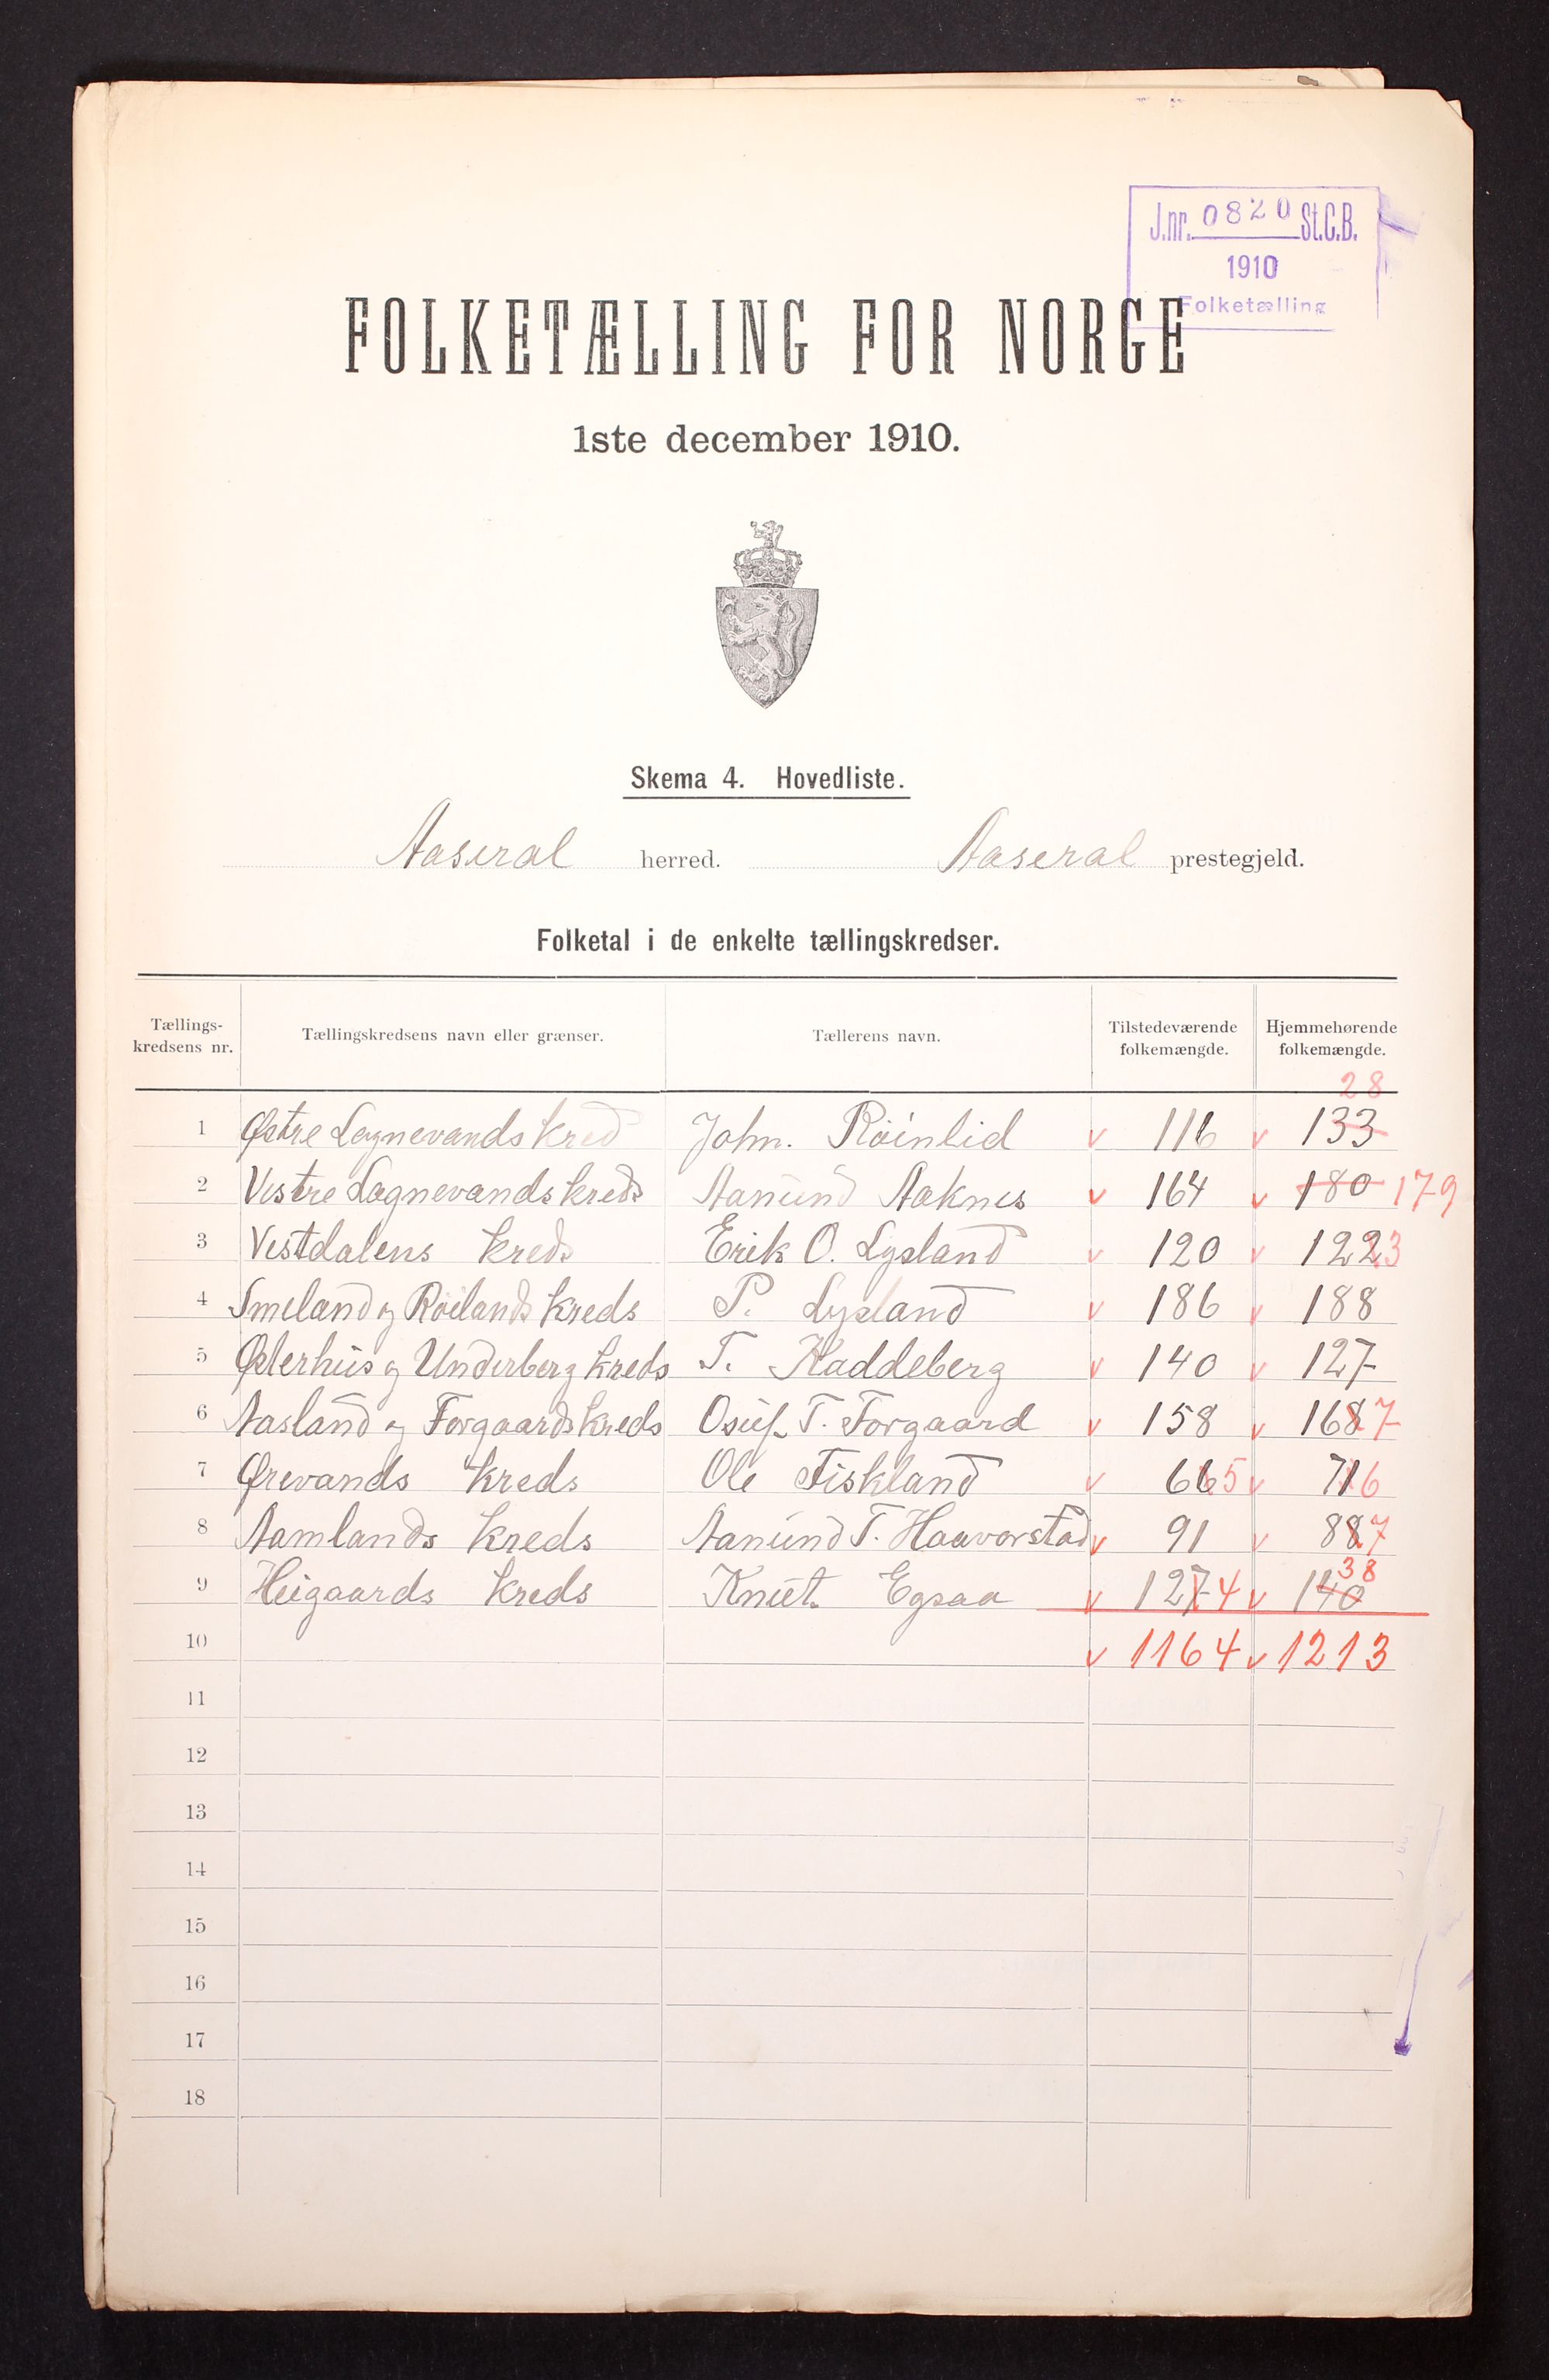 J.nr. 0820 St.C.B.
1910
Folketælling
FOLKETÆLLING FOR NORGE
1ste december 1910.
Skema 4. Hovedliste.
Aaseral herred. Aaseral prestegjeld.
Folketal i de enkelte tællingskredser.
Tællings-kredsens nr. Tællingskredsens navn eller grænser. Tællerens navn. Tilstedeværende folkemængde. Hjemmehørende folkemængde.
28
1 Østre Lognevands kred John. Röinlid v 116 v 133
2 Vestre Lognevands kreds Aanund Aaknes v 164 v 180 179
3 Vestdalens kreds Erik O. Lysland v 120 v 122 3
4 Smeland og Röilands kreds P. Lysland v 186 v 188
5 Østerhus og Underberg kreds T. Haddeberg v 140 v 127
6 Aasland og Forgaards kreds Osuf T. Forgaard v 158 v 168 7
7 Ørevands kreds Ole Fiskland v 66 5 v 71 6
8 Aamlands kreds Aanund T. Haavorstad v 91 v 88 7
38
9 Heigaards kreds Knut Egsaa v 127 4 v 140
10 v 1164 v 1213
11
12
13
14
15
16
17
18